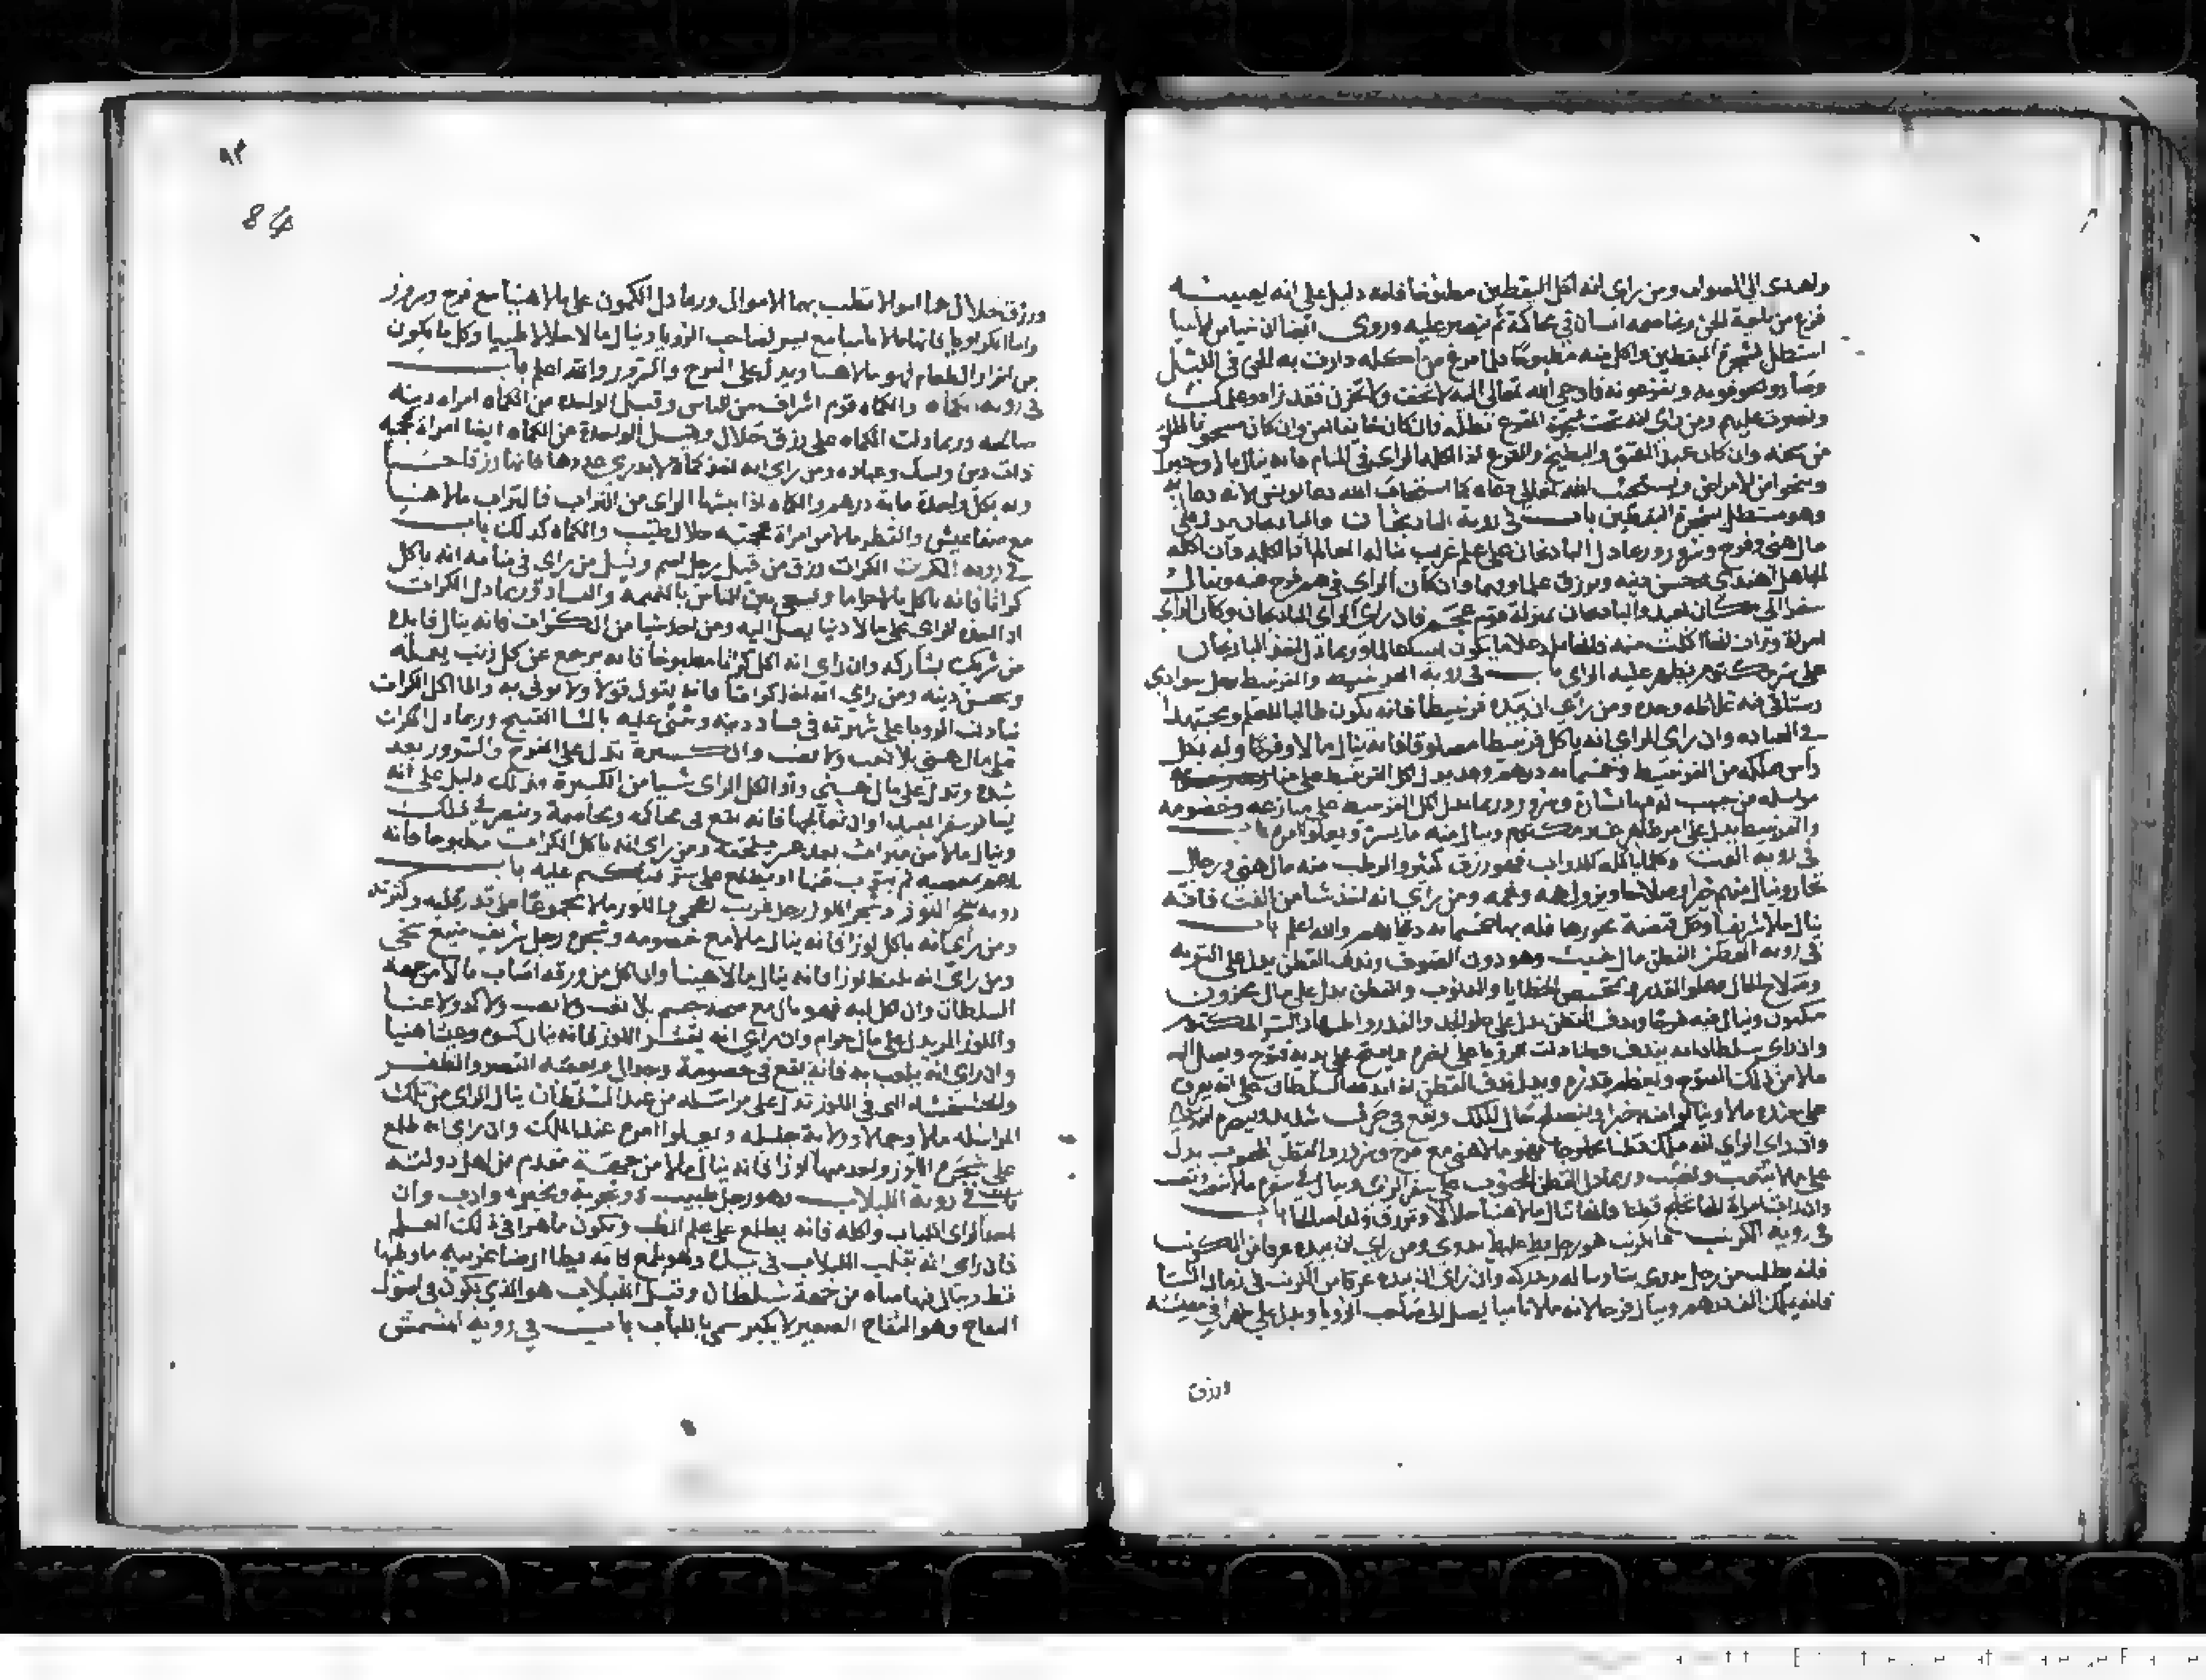 ولهدى الى الصواب ومن راى انه اكل اليقطين مطبوخا فانه دليل على انه يصيبه
فزع من ناحية الجن ويخاصمه انسان في محاكة ثم ينصر عليه وروى ايضا ان نبيا من الانبيا
استظل بشجرة اليقطين واكل منه مطبوخا
تعالى اليه لا تخف ولا تحزن فقد
ومن راى انه تحت شجرة القرع تظله فان كان خائفا امن وان كان مسجونا اطلق
من سجنه وان كان عبدا اعتق والبطيخ والقرع اذا اكله الراى في المنام فانه ينال مالا وخيرا
وينجو من الامراض ويستجيب الله تعالى دعاه كما استجاب الله دعا يونس لانه دعا به
وهو مستظل بشجرة اليقطين باب في روية الباذنجان والباذنجان يدل على
مال هني وفرح وسرور وربما دل الباذنجان على علم غريب يناله العالم اذا اكله وان اكله
الجاهل اهتدى وحسن دينه ويرزق علما وفهما وان كان الراى في هم فرج عنه وينال
سفرا الى مكان بعيد والباذنجان بمنزلة قوم عجم فان راى الراى الباذنجان وكان الراى
امراة ورات انها اكلت منه فانها تلد غلاما يكون اسكها عالما وربما دل اخذ الباذنجان
على سر مكتوم يظهر عليه الراى باب في روية القرنبيط والقرنبيط رجل سوادي
رستاقي فيه غلاظه وحده ومن راى ان بيده قرنبيطا فانه يكون طالبا للعلم ومجتهدا
في العباده وان راى الراى انه ياكل قرنبيطا مصلوقا فانه ينال مالا وفرحا وله بكل
راس ملكه من القرنبيط وخمسمايه درهم وقد يدل اكل القرنبيط على
مراسله من حبيب له فيها بشارة وسرور وربما دل اكل القرنبيط على منازعه وخصومه
والقرنبيط يدل على امر ظاهر غير مكتوم وينال منه ما يسره ويعلوا امره باب
في روية القت وكلما ياكله الدواب فهو رزق كثير والرطب منه مال هني ورجال
تجار وينال منهم خيرا وصلاحا ويزول همه وغمه ومن راى انه اخذ شيا من القت فانه
ينال مالا شريفا وكل قبضة يحوزها فله بها خمسمايه درهم والله اعلم باب
في روية القطن القطن مال خبيث وهو دون الصوف وندف القطن يدل على التوبة
وصلاح الحال وعلو القدر وتمحيص الخطايا والذنوب والقطن يدل على مال مخزون
مكنون وينال فيه فرحا وندف القطن يدل على علو الجد والقدر واظهار السر المكتوم
وان راى سلطانا انه يندف قطنا دلت الرويا على انه يغزو ويفتح على يديه فتوح ويصل اليه
مالا من تلك الفتوح ويعظم قدره ويدل ندف القطن اذا ندفه السلطان على انه يفرق
على جنده مالا وينالوا منه خيرا وينصلح حال الملك ويقع في حرب شديد وينصر
وان راى الراى انه ملك قطنا محلوجا فهو مال هني مع فرح وسرور والقطن المحبوب يدل
على مال بتعب ونصب وربما دل القطن المحبوب على سفر الراى وينال في سفره
وان رات امراة انها تحلج قطنا فانها تنال مالا هنيا حلالا وترزق ولدا صالحا باب
في روية الكرنب الكرنب هو رجل فظ غليظ بدوي ومن راى ان بيده عرقا من الكرنب
فانه يطلب من رجل بدوي شيا ويناله ويدركه وان راى ان بيده عرقا من الكرنب في زمان الشتا
فانه يملك الف درهم وينال فرحا لانه مالا ناميا يصل الى صاحب الرويا ويدل على خير في معيشته
ورزق
٨٣
84
ورزق حلال هما اموالا تطلب بهما الاموال وربما دل الكمون على مالا هنيا مع فرح وسرور
واما الكراويا فانها مالا ناميا مع يسر لصاحب الرويا وينال مالا حلالا طيبا وكل ما يكون
من ابزار الطعام فهو مالا هنيا ويدل على الفرح والسرور والله اعلم باب
في روية الكماه والكماه قوم اشراف من الناس وقيل الواحدة من الكماه امراه دينه
صالحه وربما دلت الكماه على رزق حلال وقيل الواحدة من الكماه ايضا امراة محبه
ذات دين ونسك وعباده ومن راى انه اخذ كماة لا يدري عددها فانها رزقا حسنا
وله بكل واحدة مايه درهم والكماه اذا نبشها الراى من التراب فالتراب مالا هنيا
مع صفا عيش والفطر مالا من امراة محبه حلالا طيب والكماه كذلك باب
في روية الكرات الكرات رزق من قبل رجل اصم وقيل من راى في منامه انه ياكل
كراثا فانه ياكل مالا حراما ويسعى بين الناس بالنميمه والفساد وربما دل الكرات
اذا اخذه الراى على مال دنيا يصل اليه ومن اخذ شيا من الكرات فانه ينال فايدة
من شريك يشاركه وان راى انه اكل كراثا مطبوخا فانه يرجع عن كل ذنب يعمله
ويحسن دينه ومن راى انه اخذ كراثا فانه يقول قولا ولا يوفى به واما اكل الكرات
نيا دلت الرويا على شهرته في فساد دينه ويثنى عليه بالثنا القبيح وربما دل الكرات
على مال هني بلا تعب ولا نصب والكسبرة تدل على الفرح والسرور بعد
شدة وتدل على مال هني واذا اكل الراى شيا من الكسبرة فذلك دليل على انه
يسافر سفرا بعيدا وان تعالجها فانه يقع في محاكمه ومخاصمة وينصر في ذلك
وينال مالا من ميراث بعد هم يلحقه ومن راى انه ياكل الكراث مطبوخا فانه
يهم بمعصيه ثم يتوب منها او يطلع على سر مكتم عليه باب
روية شجر اللوز وشجر اللوز رجل غريب اعجمى واللوز مالا مجموعا على قدر قلته وكثرته
ومن راى انه ياكل لوزا فانه ينال مالا مع خصومه وشجره رجل شريف منيع سخي
ومن راى انه يلتقط لوزا فانه ينال مالا هنيا وان اكل من ورقه اصاب مالا من جهة
السلطان وان اكل لبه فهو مال مع صحة جسم بلا تعب ولا نصب ولا كد ولا عنا
واللوز المر يدل على مال حرام وان راى انه يقشر اللوز فانه ينال كسوه وعيشا هنيا
وان راى انه يلعب به فانه يقع في خصومة وجدال ويعقبه النصر والظفر
والخشخشه التى في اللوز تدل على مراسله من عند السلطان ينال الراى من تلك
المراسله مالا وجمالا وولاية جليله ويعلوا امره عند الملك وان راى انه طلع
على شجرة اللوز واخذ منها لوزا فانه ينال مالا من جهة مقدم من اهل دولته
باب في روية اللبلاب وهو رجل طبيب ذو تجربة وخبره وادب وان
اخذ الراى اللبلاب واكله فانه يطلع على علم الطب ويكون ماهرا في ذلك العلم
فان راى انه تقلب اللبلاب في يده وهو يلمع فانه يطا ارضا غريبه ما وطيها
قط وينال فيها مياه من خدمة سلطان وقيل اللبلاب هو الذي يكون في اصول
التفاح وهو التفاح الصغير لا يكبر سمي باللبلاب باب في روية المشمش